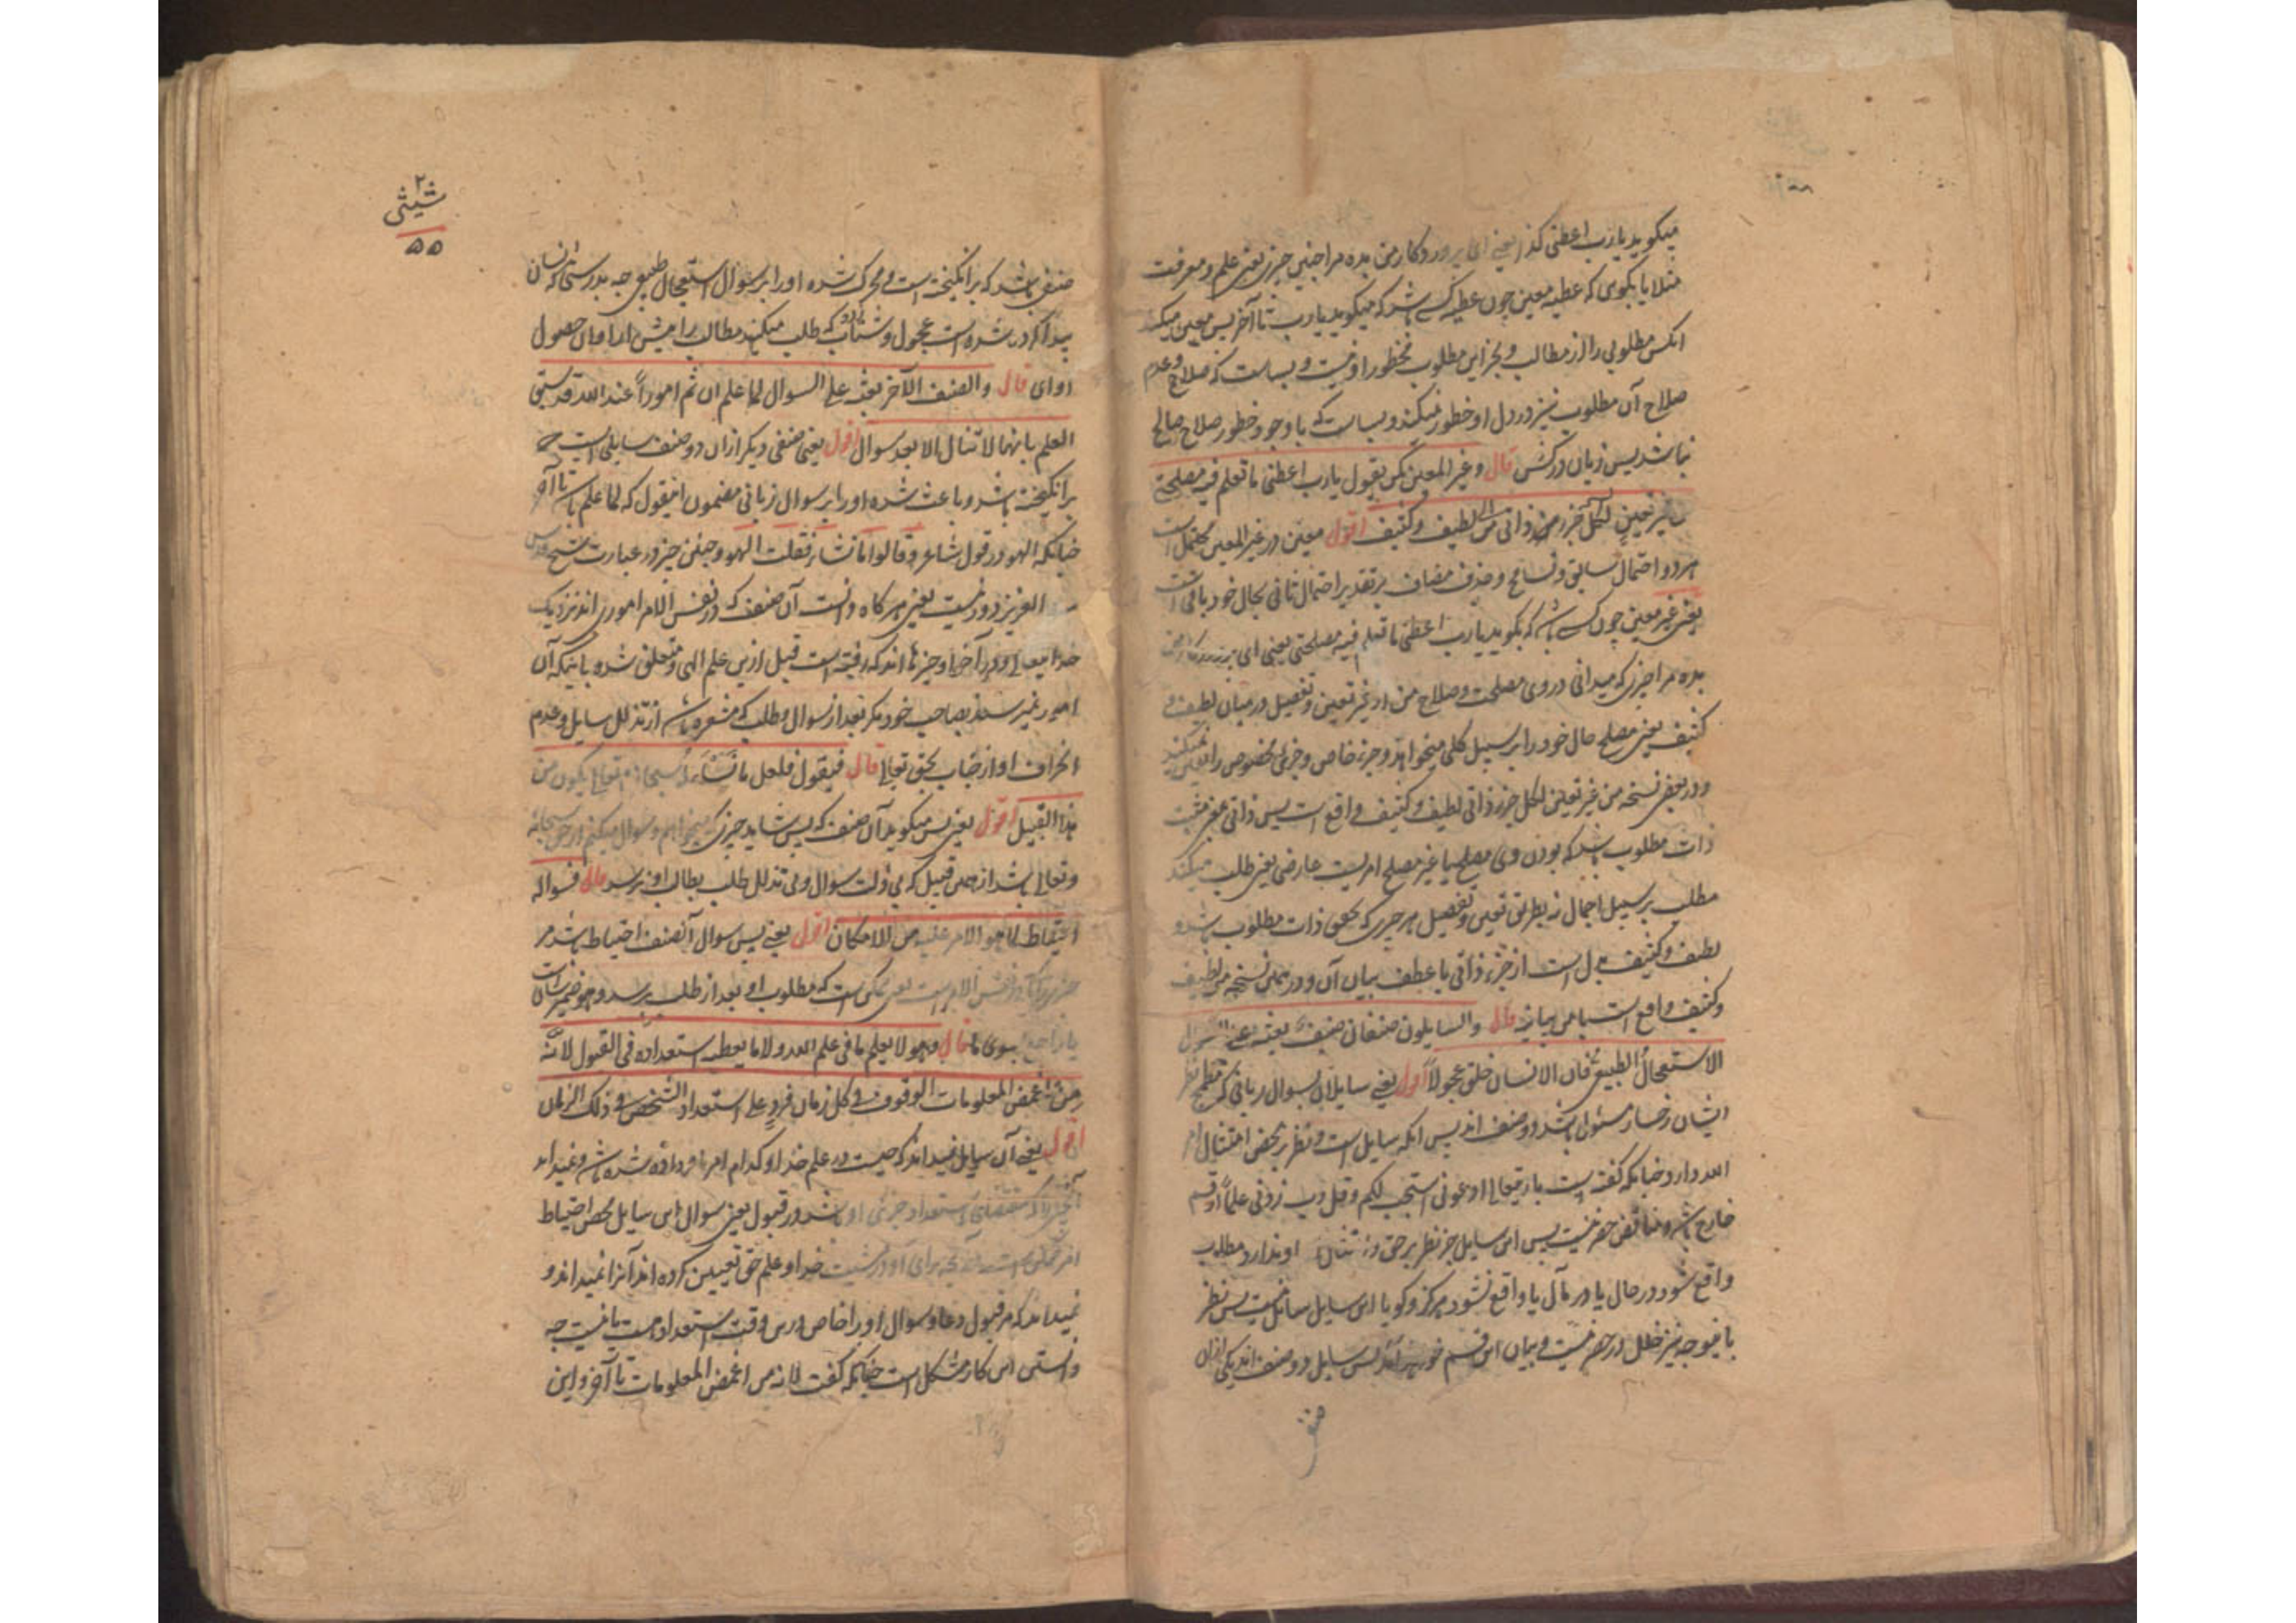 میکوید یا رب اعطنی کذا یعنی ای پروردکار من بده مرا چنین چیزی یعنی علم و معرفت
مثلا یا بکوی که عطیه معین چون عطیه کسی باشد که میکوید یا رب تا آخر پس معین میکند
انکس مطلوبی را از مطالب و بجز این مطلوب مخطور او نیست و بسیاست که صلاح و عدم
صلاح آن مطلوب نیز در دل او خطور نمیکند و بسیاست که با وجود خطور صلاح صالح
نباشد پس زیان در کشش قال وغیر المعین کمن یقول یا رب اعطنی ما تعلم فیه مصلحتی
من غیر تعیین لکل جزء من ذاتی من لطیف وکثیف اقول معین در غیر المعین محتمل است
هر دو احتمال سابق و تسامح و حذف مضاف بر تقدیر احتمال ثانی بحال خود باقی است
یعنی غیر معین چون کسی باشد که بکوید یا رب اعطنی ما تعلم فیه مصلحتی یعنی ای پروردکار من
بده مرا چیزی که میدانی در وی مصلحت و صلاح من از غیر تعیین و تفصیل در میان لطیف و
کثیف یعنی مصلح حال خود را بر سبیل کلی میخواهد و جزء خاص و جزئی مخصوص را تعین نمیکند
و در بعض نسخه من غیر تعیین لکل جزء ذاتی لطیف و کثیف واقع است پس ذاتی
ذات مطلوب باشد که بودن وی مصلح یا غیر مصلح امریست عارضی یعنی طلب میکند
مطلب بر سبیل اجمال نه بطریق تعیین و تفصیل هر جزی که محق ذات مطلوب باشد و
لطیف و کثیف بدل است از جزء ذاتی یا عطف بیان آن و در بعض نسخه من لطیف
و کثیف واقع است با من بیانیه قال والسایلون صنفان صنف بعثه علی السؤال
الاستعجال الطبیعی فان الانسان خلق عجولا اقول یعنی سایلان بسوال زبانی که مطمح نظر
ایشان رخسار مسئول باشد دو صنف اند پس انکه سایل است و نظر بر محض امتثال امر
الله دارد چنانکه کفته است باریتعالی ادعونی استجب لکم وقل رب زدنی علما از قسم
خارج باشد و مناقض حصر نیست پس این سایل جز نظر بر حق و امتثال او ندارد مطلب
واقع شود در حال یا در مآل یا واقع نشود هرکز و کویا این سایل سائل نیست پس نظر
باینوجه نیز خلل در حصر نیست و بیان این قسم خواهد آمد پس سایل دو صنف اند یکی ازان
صنفی
۲ شیثی
۵۵
صنفی باشد که برانکیخته است و محرک شده او را بر سوال استعجال طبیعی چه بدرستی که انسان
پیدا کرده شده است عجول و شتاب که طلب میکند مطالب را پیش از اوان حصول
او ای قال والصنف الآخر بعثه علی السوال لما علم ان ثم امورا عند الله قد سبق
العلم بانها لا تنال الا بعد سوال اقول یعنی صنفی دیکر ازان دو صنف سایلی است که
برانکیخته باشد و باعث شده او را بر سوال زبانی مضمون این قول که لما علم باشد تا آخر
چنانکه الهو در قول شاعر وقالوا ما تشاء فقلت الهو و چنین چیز در عبارت شیخ قدس
سره العزیز دور نیست یعنی هرکاه دانست آن صنف که در نفس الامر اموری اند نزدیک
خدایتعالی و در آخر او چیزها اند که رفته است قبل ازین علم الهی و متعلق شده باینکه آن
امور نمیرسند بصاحب خود مکر بعد از سوال و طلب که مشعر باشد از تذلل سایل و عدم
انحراف او از جناب بحق تعالی قال فیقول فلعل ما نسأله سبحانه وتعالی یکون من
هذا القبیل اقول یعنی پس میکوید آن صنف که پس شاید چیزی که میخواهم و سوال میکنم از حق سبحانه
وتعالی باشد از همین قبیل که بی ذلت سوال و بی تذلل طلب بطالب او نرسد قال فسواله
احتیاط لما هو الامر علیه من الامکان اقول یعنی پس سوال آنصنف احتیاط باشد مر
چیزی را که در نفس الامر است یعنی ممکن است که مطلوب او بعد از طلب برسد و هو ضمیر شان است
یا راجع بسوی ما قال وهو لا یعلم ما فی علم الله ولا ما یعطیه استعداده فی القبول لانه
من اغمض المعلومات الوقوف فی کل زمان فرد علی استعداد الشخص فی ذلک الزمان
اقول یعنی آن سایل نمیداند که چیست در علم خدا و کدام امر نامزد او شده باشد و نمیداند
آنچیز را که مقتضای استعداد جزئی او باشد در قبول یعنی سوال این سایل محض احتیاط
امر ممکن است آنچه برای او در مشیت خدا و علم حق تعیین کرده اند آنرا نمیداند و
نمیداند که مر قبول دعا و سوال او را خاص درین وقت استعداد هست یا نیست چه
دانستن این کار مشکل است چنانکه کفت لانه من اغمض المعلومات تا آخر و این